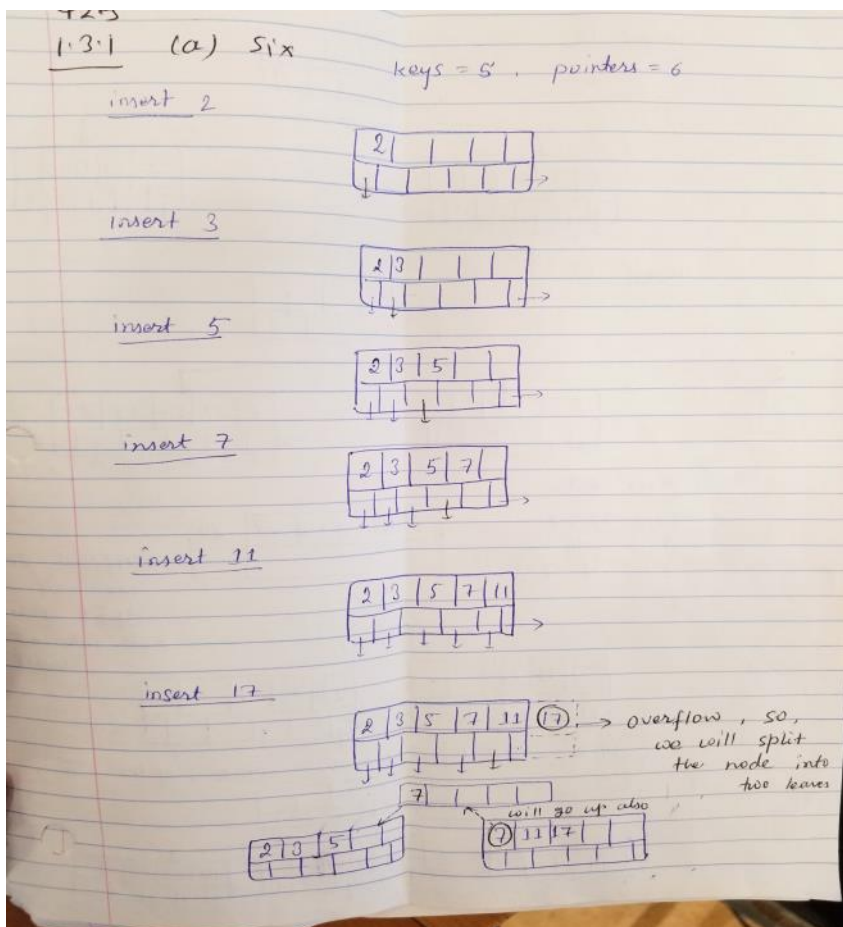 1.3.1 (a) Six
keys = 5, pointers = 6
insert 2
2
insert 3
2 3
insert 5
2 3 5
insert 7
2 3 5 7
insert 11
2 3 5 7 11
insert 17
2 3 5 7 11 17 → overflow, so,
we will split
the node into
two leaves
7
will go up also
2 3 5
7 11 17